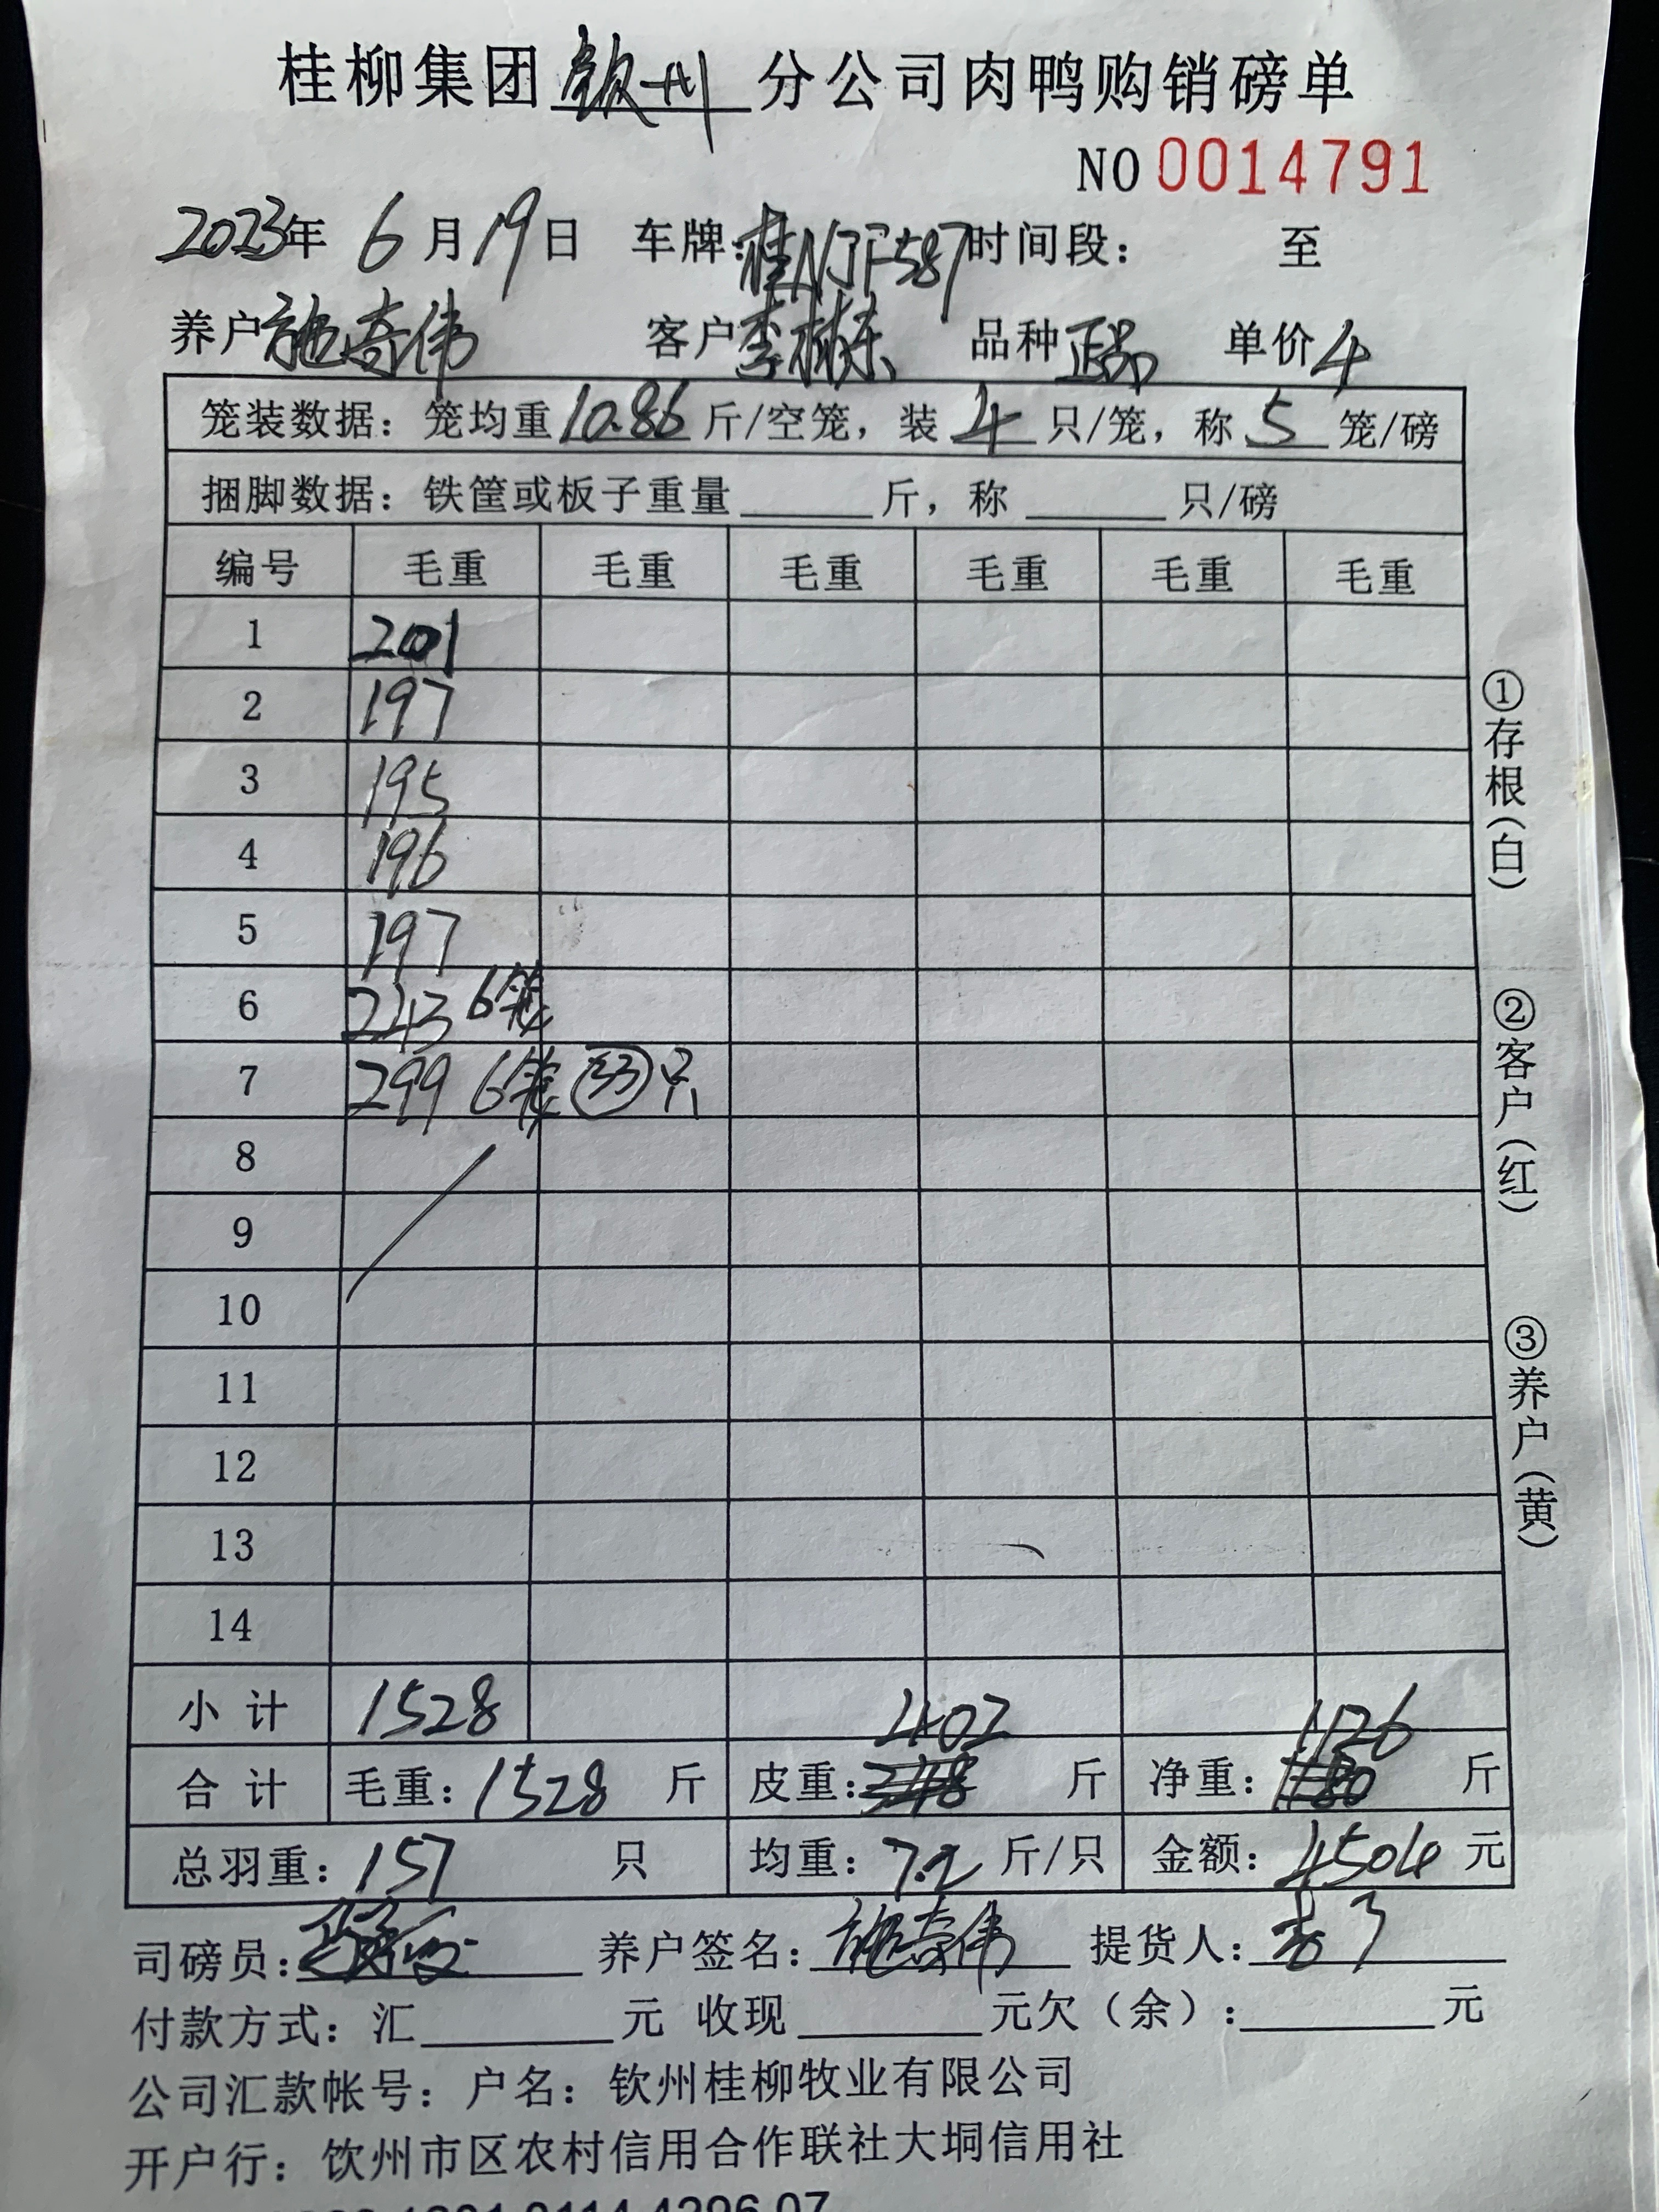 桂柳集团钦州分公司肉鸭购销磅单
NO 0014791
2023年 6月19日 车牌:桂NJF587时间段: 至
养户施奇伟 客户李树东 品种 单价4
笼装数据: 笼均重10.86斤/空笼, 装4只/笼, 称5笼/磅
捆脚数据: 铁筐或板子重量______斤, 称______只/磅
编号 毛重 毛重 毛重 毛重 毛重 毛重
1 201
2 197
3 195
4 196
5 197
6 243 6笼
7 299 6笼 33只
8
9
10
11
12
13
14
小计 1528 402 1126
合计 毛重:1528 斤 皮重:348 斤 净重:1180 斤
总羽重:157 只 均重:7.2 斤/只 金额:4504元
司磅员: 养户签名:施奇伟 提货人:
付款方式: 汇______元 收现______元欠(余):______元
公司汇款帐号: 户名: 钦州桂柳牧业有限公司
开户行: 钦州市区农村信用合作联社大垌信用社
①存根(白)
②客户(红)
③养户(黄)